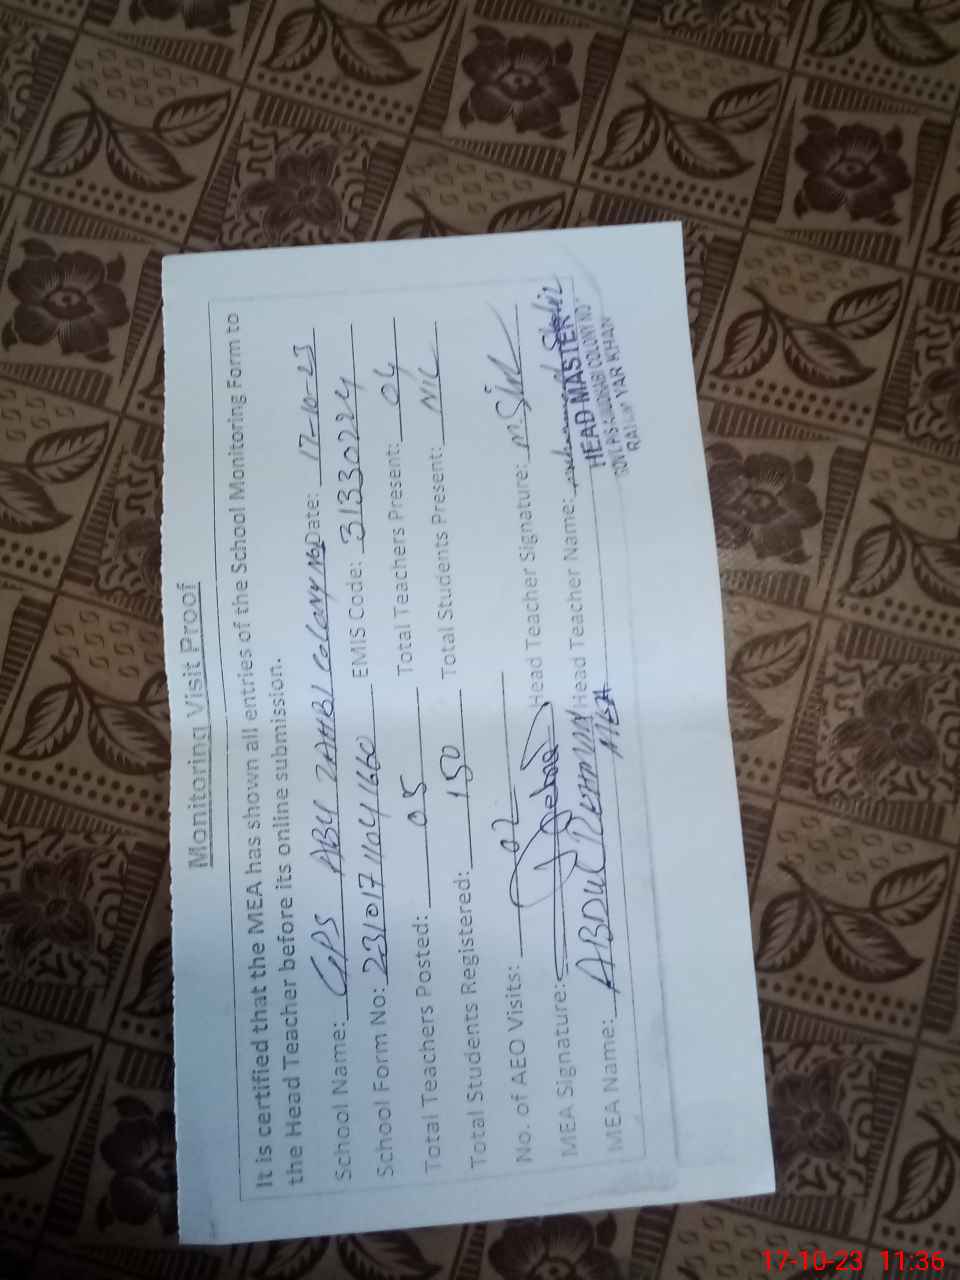 Monitoring Visit Proof
It is certified that the MEA has shown all entries of the School Monitoring Form to
the Head Teacher before its online submission.
School Name: GPS ABU ZAHBI COLONY NO Date: 17-10-23
School Form No: 231017110411660 EMIS Code: 31330224
Total Teachers Posted: 05 Total Teachers Present: 04
Total Students Registered: 150 Total Students Present: NIL
No. of AEO Visits: 02
MEA Signature: Head Teacher Signature:
MEA Name: ABDUL REHMAN Head Teacher Name:
MEA
HEAD MASTER
COLONY NO
YAR KHAN
17-10-23 11:36